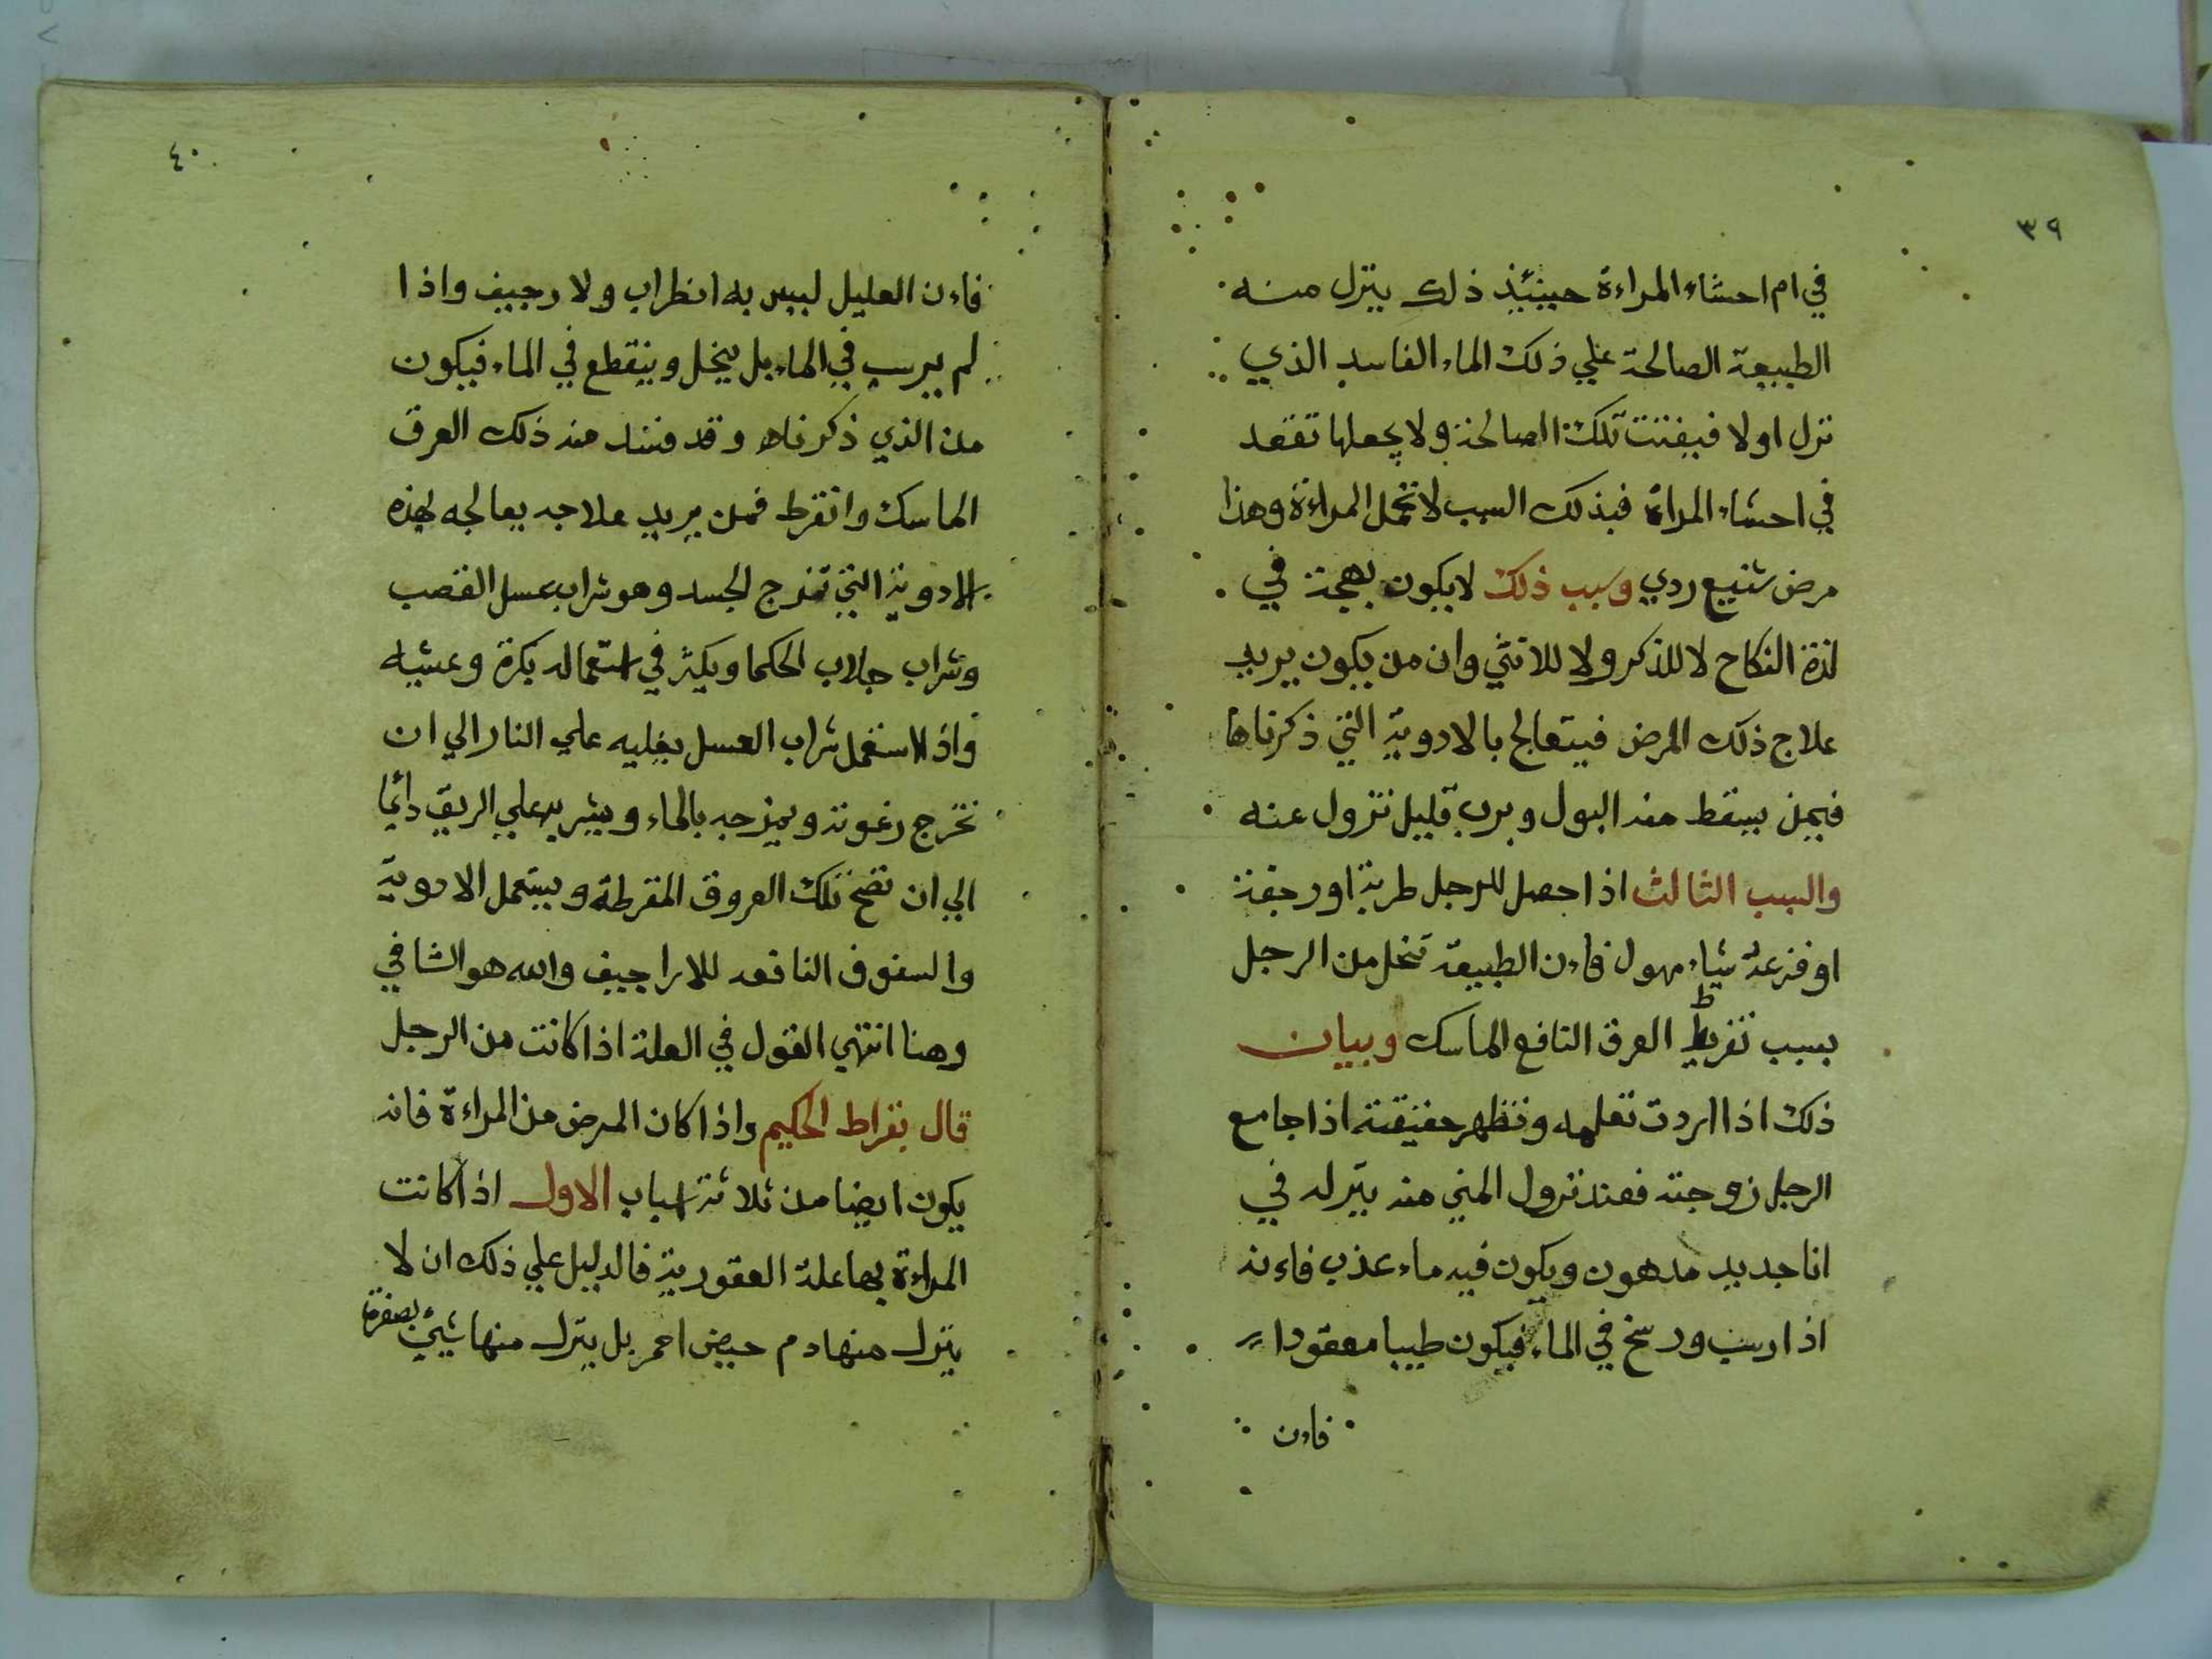 ٣٩
في ام احشاء المراءة حينئذ ذلك ينزل منه
الطبيعة الصالحة علي ذلك الماء الفاسد الذي
نزل اولا فيفتت تلك الصالحة ولا يجعلها تقعد
في احشاء المراة فبذلك السبب لا تحمل المراءة وهذا
مرض شنيع ردي وسبب ذلك لا يكون بهجة في
لذة النكاح لا للذكر ولا للانثي وان من يكون يريد
علاج ذلك المرض فيتعالج بالادوية التي ذكرناها
فيمن يسقط منه البول وبرب قليل تزول عنه
والسبب الثالث اذا حصل للرجل طربة او رجفة
او فزعة شياء مهول فاءن الطبيعة تنحل من الرجل
بسبب تفريط العرق النافع الماسك وبيان
ذلك اذا اردت تعلمه وتظهر حقيقته اذا جامع
الرجل زوجته فعند نزول المني منه ينزله في
انا جديد مدهون ويكون فيه ماء عذب فاءنه
اذا رسب ورسخ في الماء فيكون طيبا معقودا
فاءن
٤٠
فاءن العليل ليس به انظراب ولا رجيف واذا
لم يرسب في الماء بل ينحل وينقطع في الماء فيكون
من الذي ذكرناه وقد فسد منه ذلك العرق
الماسك وانقرط فمن يريد علاجه يعالجه بهذه
الادوية التي تفرج الجسد وهو شراب عسل القصب
وشراب جلاب الحكما ويكثر في استعماله بكرة وعشيه
واذا استعمل شراب العسل يغليه علي النار الي ان
تخرج رغوته ويمزجه بالماء ويشربه علي الريق دائما
الي ان تصح تلك العروق المقرطة ويستعمل الادوية
والسفوف النافعه للاراجيف والله هو الشافي
وهنا انتهي القول في العلة اذا كانت من الرجل
قال بقراط الحكيم واذا كان المرض من المراءة فانه
يكون ايضا من ثلاثة اسباب الاول اذا كانت
المراءة بها علة العقورية فالدليل علي ذلك ان لا
ينزل منها دم حيض احمر بل ينزل منها شيئ بصفرة